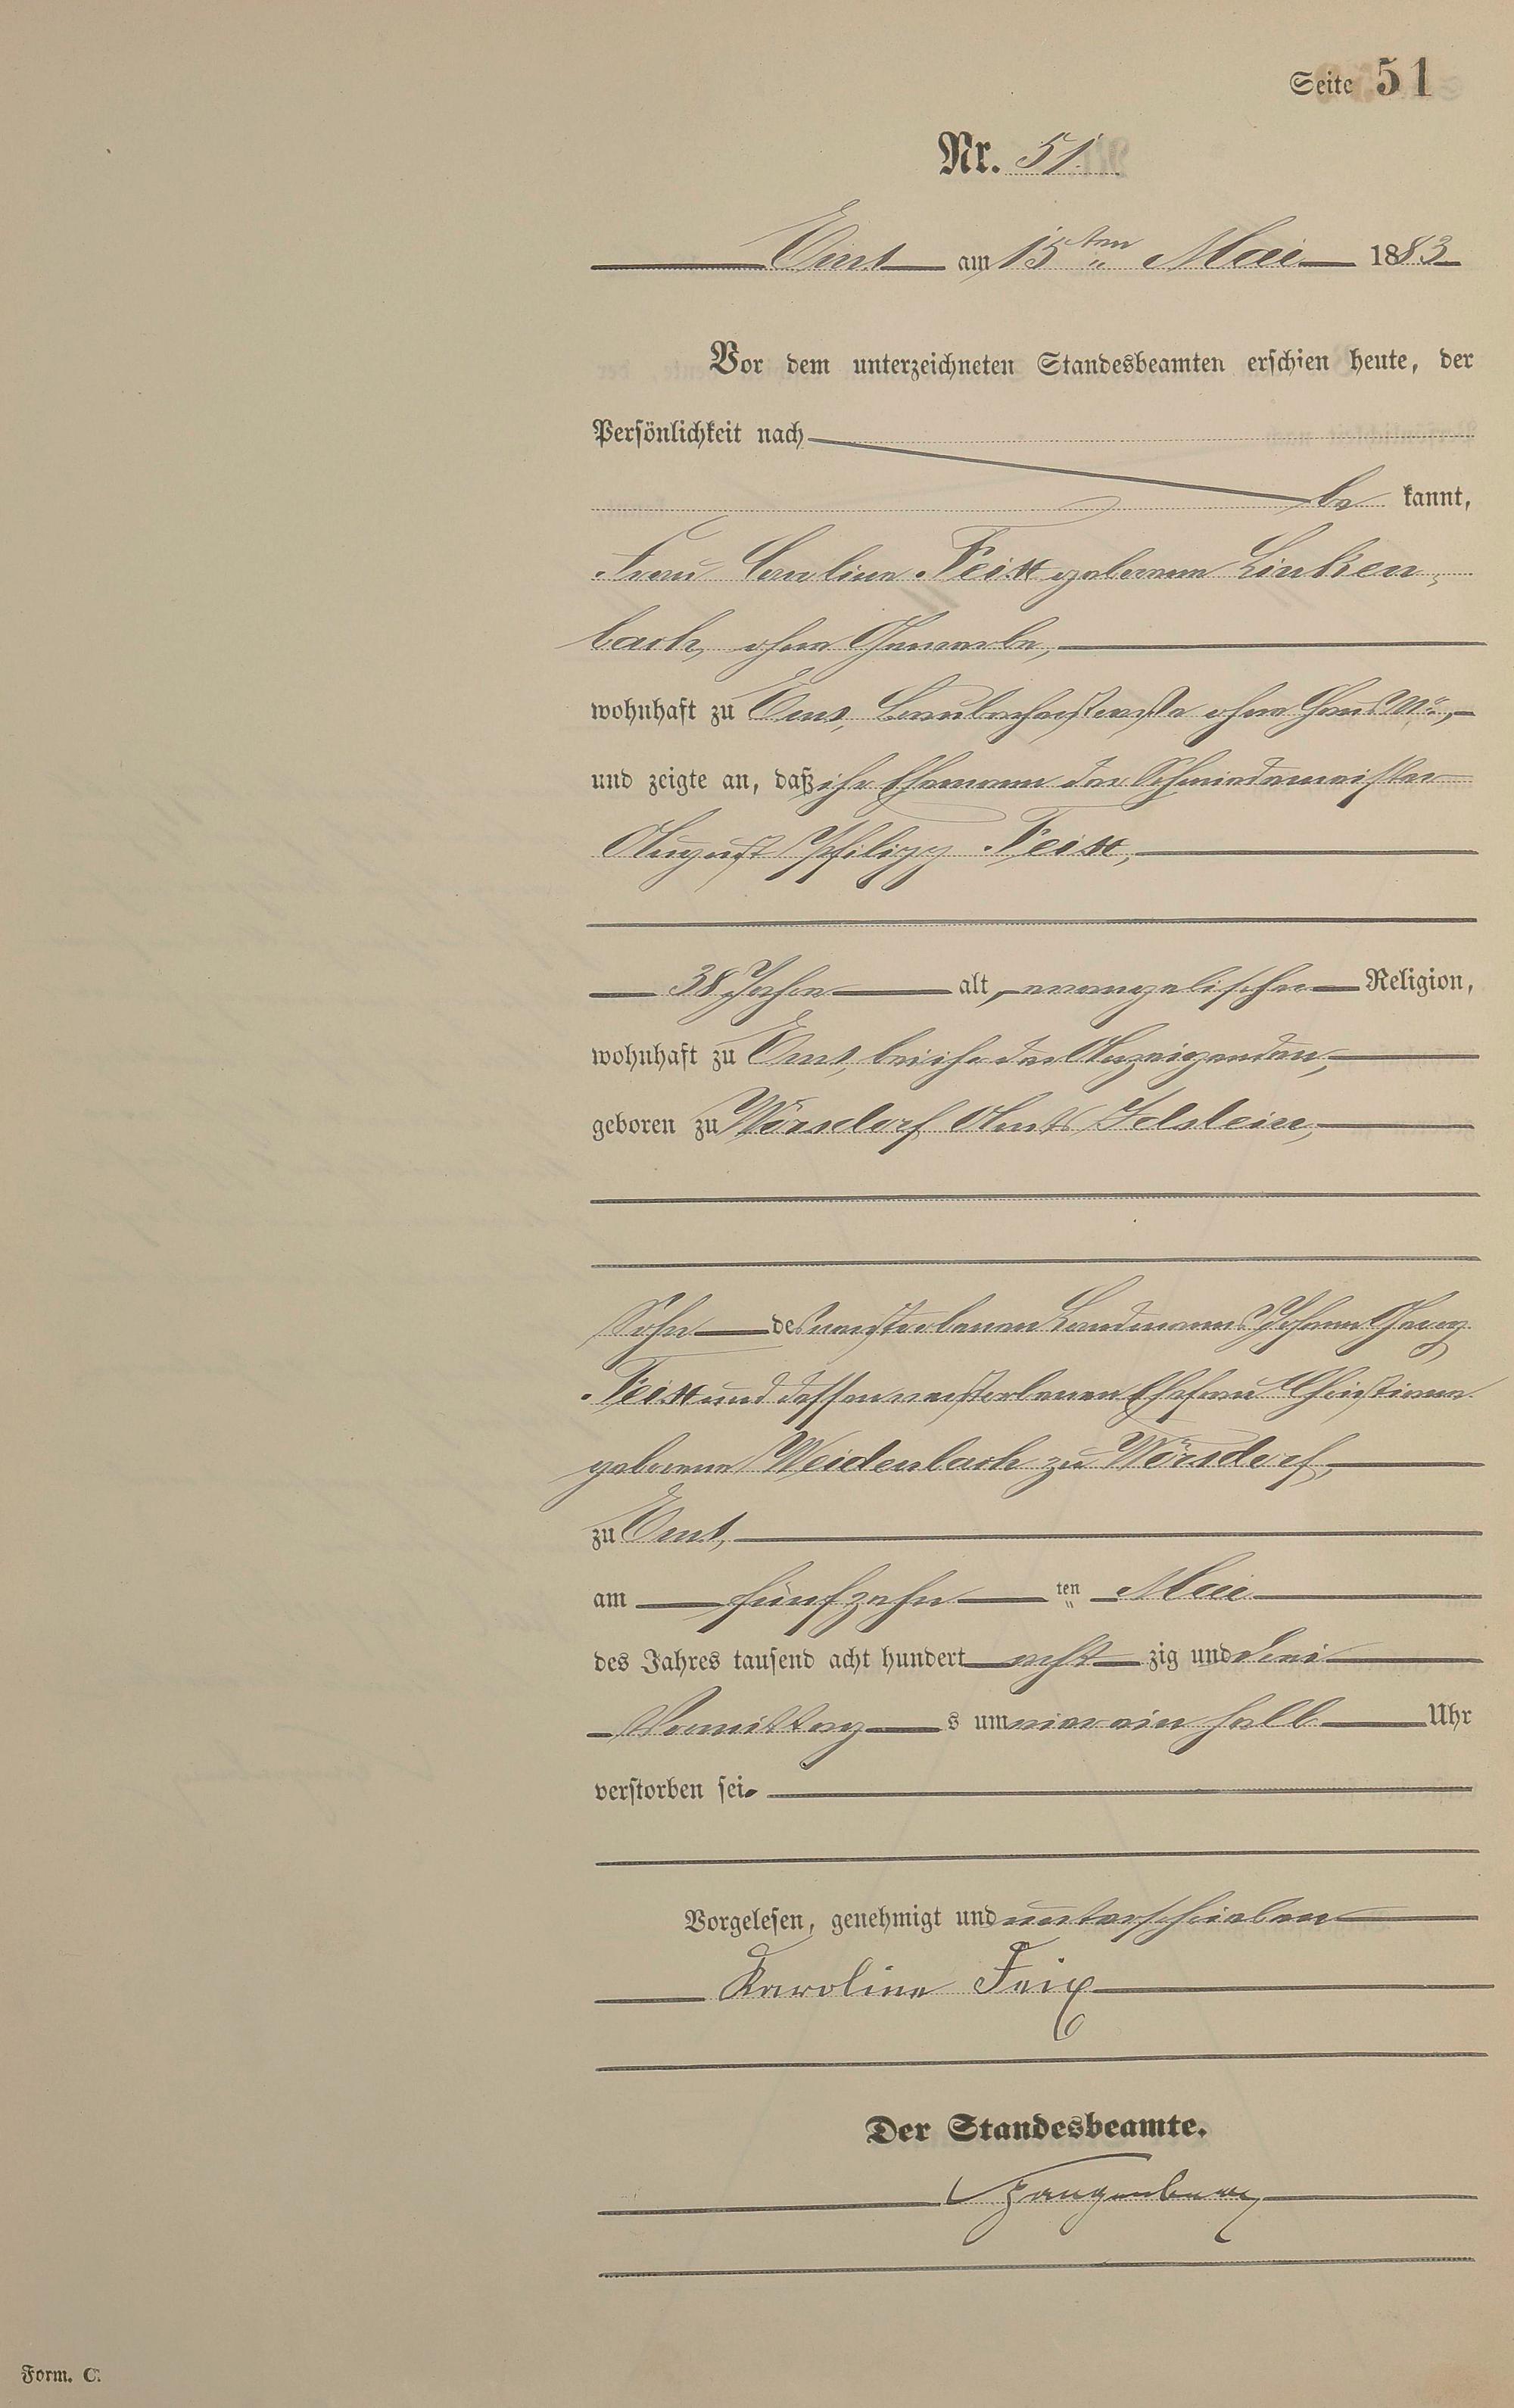 Seite 51
Nr. 51.
Ems am 15ten Mai 1883
Vor dem unterzeichneten Standesbeamten erschien heute, der
Persönlichkeit nach
be kannt,
Frau Caroline Feix geborene Linken-
bach, ohne Gewerbe,
wohnhaft zu Ems, ohne Haus No,
und zeigte an, daß ihr Ehemann der Schmiedemeister
August Philipp Feix,
38 Jahre alt, evangelischer Religion,
wohnhaft zu Ems, bei ihr der Anzeigenden,
geboren zu Wörsdorf Amts Idstein,
Sohn des verstorbenen Landmanns Johann Georg
Feix und dessen verstorbenen Ehefrau Christiane
geborene Weidenbach zu Wörsdorf,
zu Ems,
am fünfzehn ten Mai
des Jahres tausend acht hundert acht zig und drei
Vormittag s um vier ein halb Uhr
verstorben sei.
Vorgelesen, genehmigt und unterschrieben
Karoline Feix
Der Standesbeamte.
Form. C.